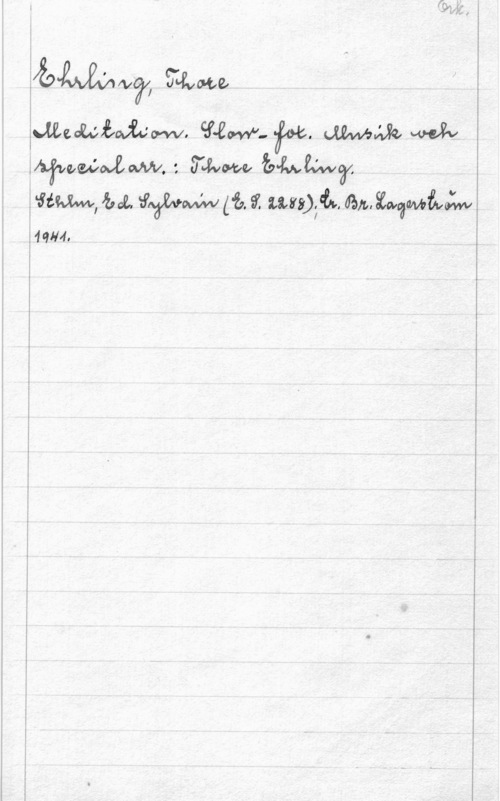 Ork.
Ehrling, Thore
Meditation. Slow-fot. Musik och
specialarr. : Thore Ehrling.
Sthlm, Ed. Sylvain (E. S. 2288); tr. Br. Lagerström
1941.